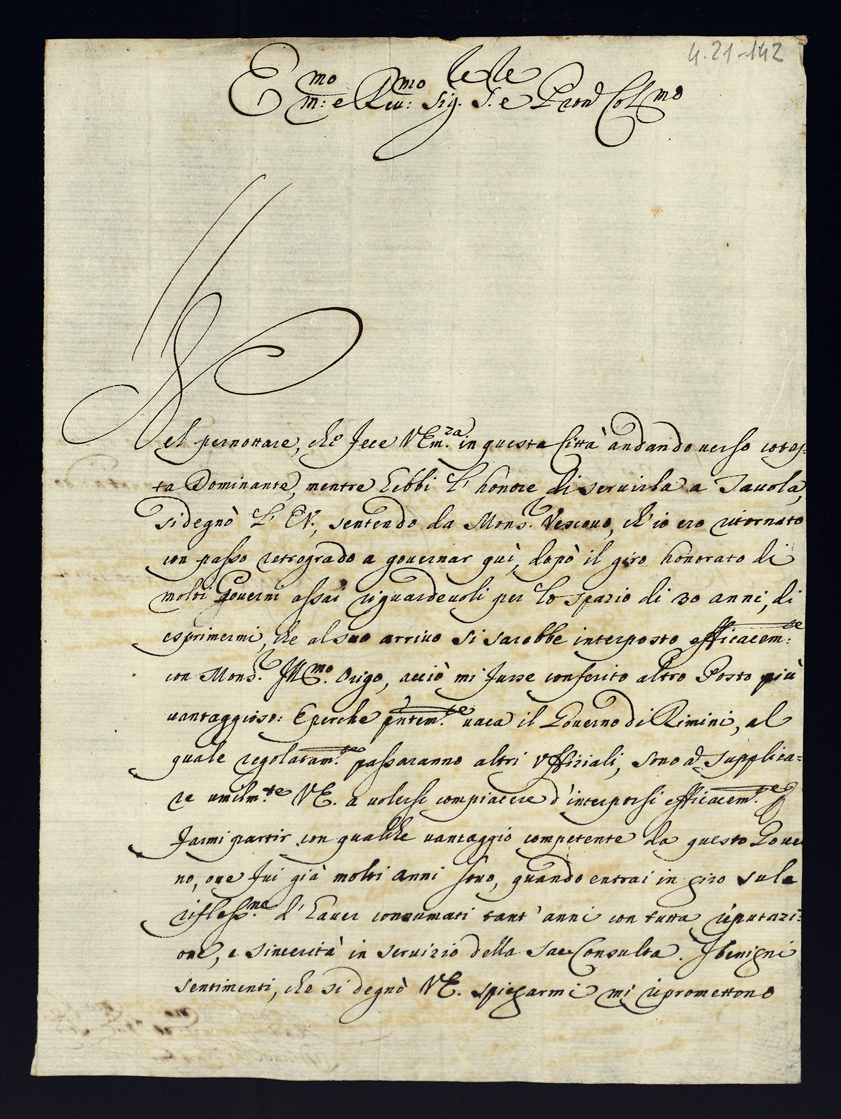 4.21-142
Em:mo e Reu:mo Sig.le S.le e Pron Col.mo
Nel pernottare, che fece V Em.za in questa Città andando uerso cotes-
ta Dominante, mentre hebbi l'honore di seruirla a Tauola,
si degnò l'EV., sentendo da Mons.r Vescouo, ch'io ero ritornato
con passo retrogrado a gouernar quì, dopò il giro honorato di
molti Gouerni assai riguardeuoli per lo spazio di 30 anni, di
esprimermi, che al suo arriuo si sarebbe interposto efficacem:te
con Mons.r Ill.mo Origo, acciò mi fusse conferito altro Posto più
uantaggioso: E perche pntem.te uaca il Gouerno di Rimini, al
quale regolatam.te passaranno altri Vffiziali, sono a supplica-
re umilm.te VE. a uolersi compiacere d'interporsi efficacem.te p
farmi partir con qualche uantaggio competente da questo Gouer
no, oue fui già molti anni sono, quando entrai in giro sul a
rifless.ne d'hauer consumati tant'anni con tutta riputazi-
one, e sincerità in seruizio della Sac Consulta. I benigni
sentimenti, che si degnò VE. spiegarmi mi ripromettono